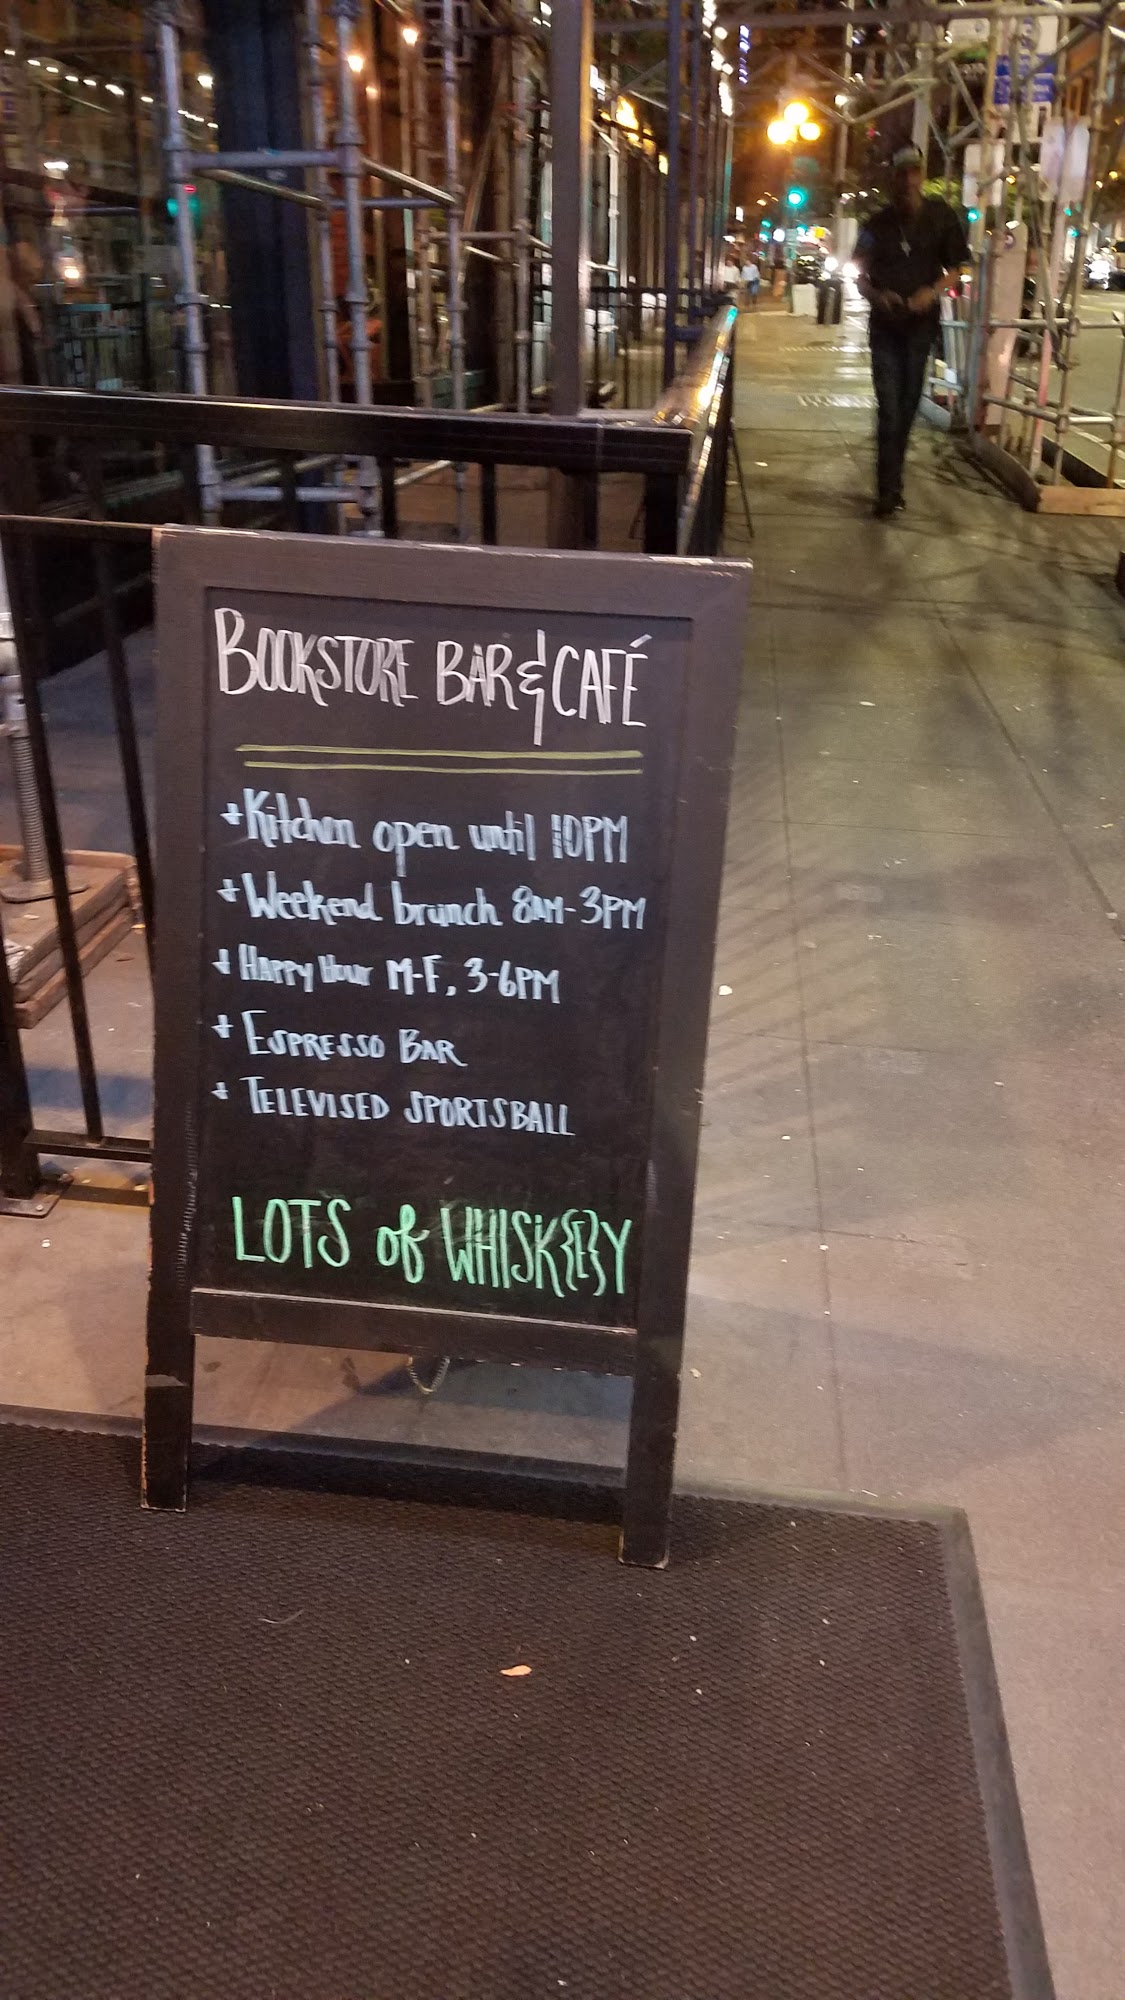 BOOKSTORE BAR & CAFÉ
+ Kitchen open until 10PM
+ Weekend brunch 8AM-3PM
+ HAPPY Hour M-F, 3-6PM
+ ESPRESSO BAR
+ TELEVISED SPORTSBALL
LOTS of WHISK{E}Y